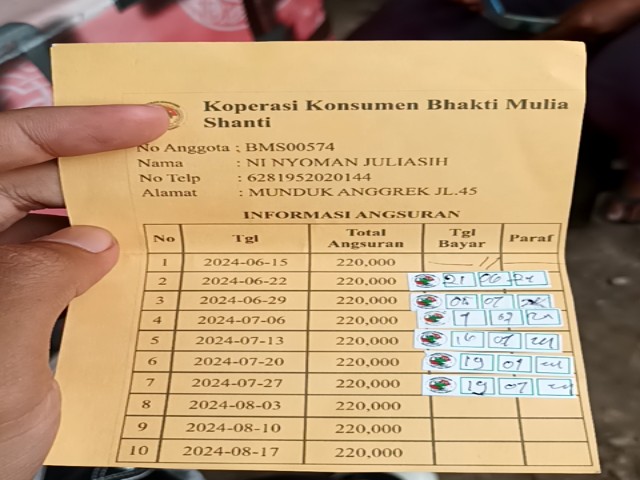 Koperasi Konsumen Bhakti Mulia
Shanti
No Anggota : BMS00574
Nama : NI NYOMAN JULIASIH
No Telp : 6281952020144
Alamat : MUNDUK ANGGREK JL.45
INFORMASI ANGSURAN
No Tgl Total Angsuran Tgl Bayar Paraf
1 2024-06-15 220,000
2 2024-06-22 220,000 21 06
3 2024-06-29 220,000 07
4 2024-07-06 220,000
5 2024-07-13 220,000 07
6 2024-07-20 220,000 19 07
7 2024-07-27 220,000 19 07
8 2024-08-03 220,000
9 2024-08-10 220,000
10 2024-08-17 220,000